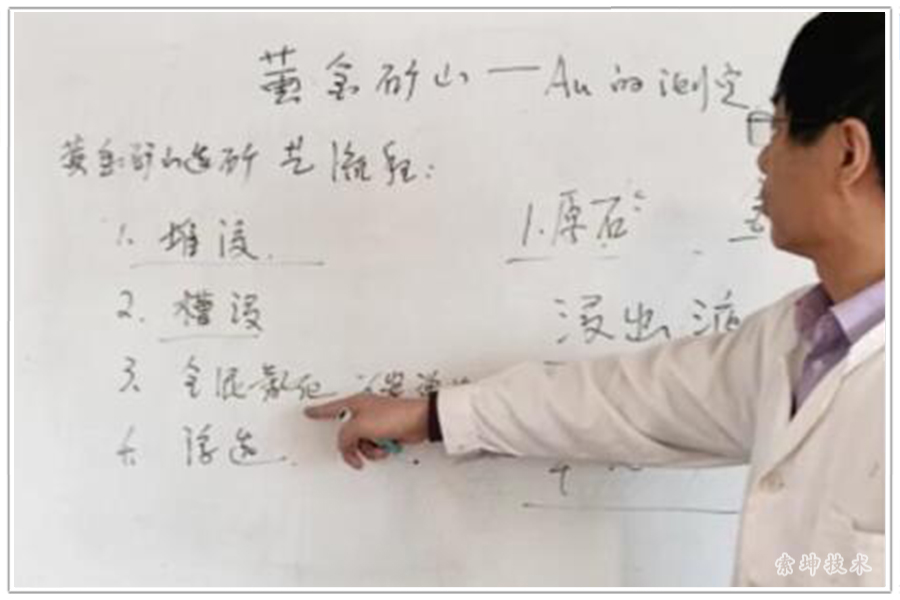 黄金矿山——Au的测定
黄金矿山选矿艺流程:
1. 堆浸
2. 槽浸
3. 全泥氰化
4. 浮选
1.原石
浸出液
索坤技术